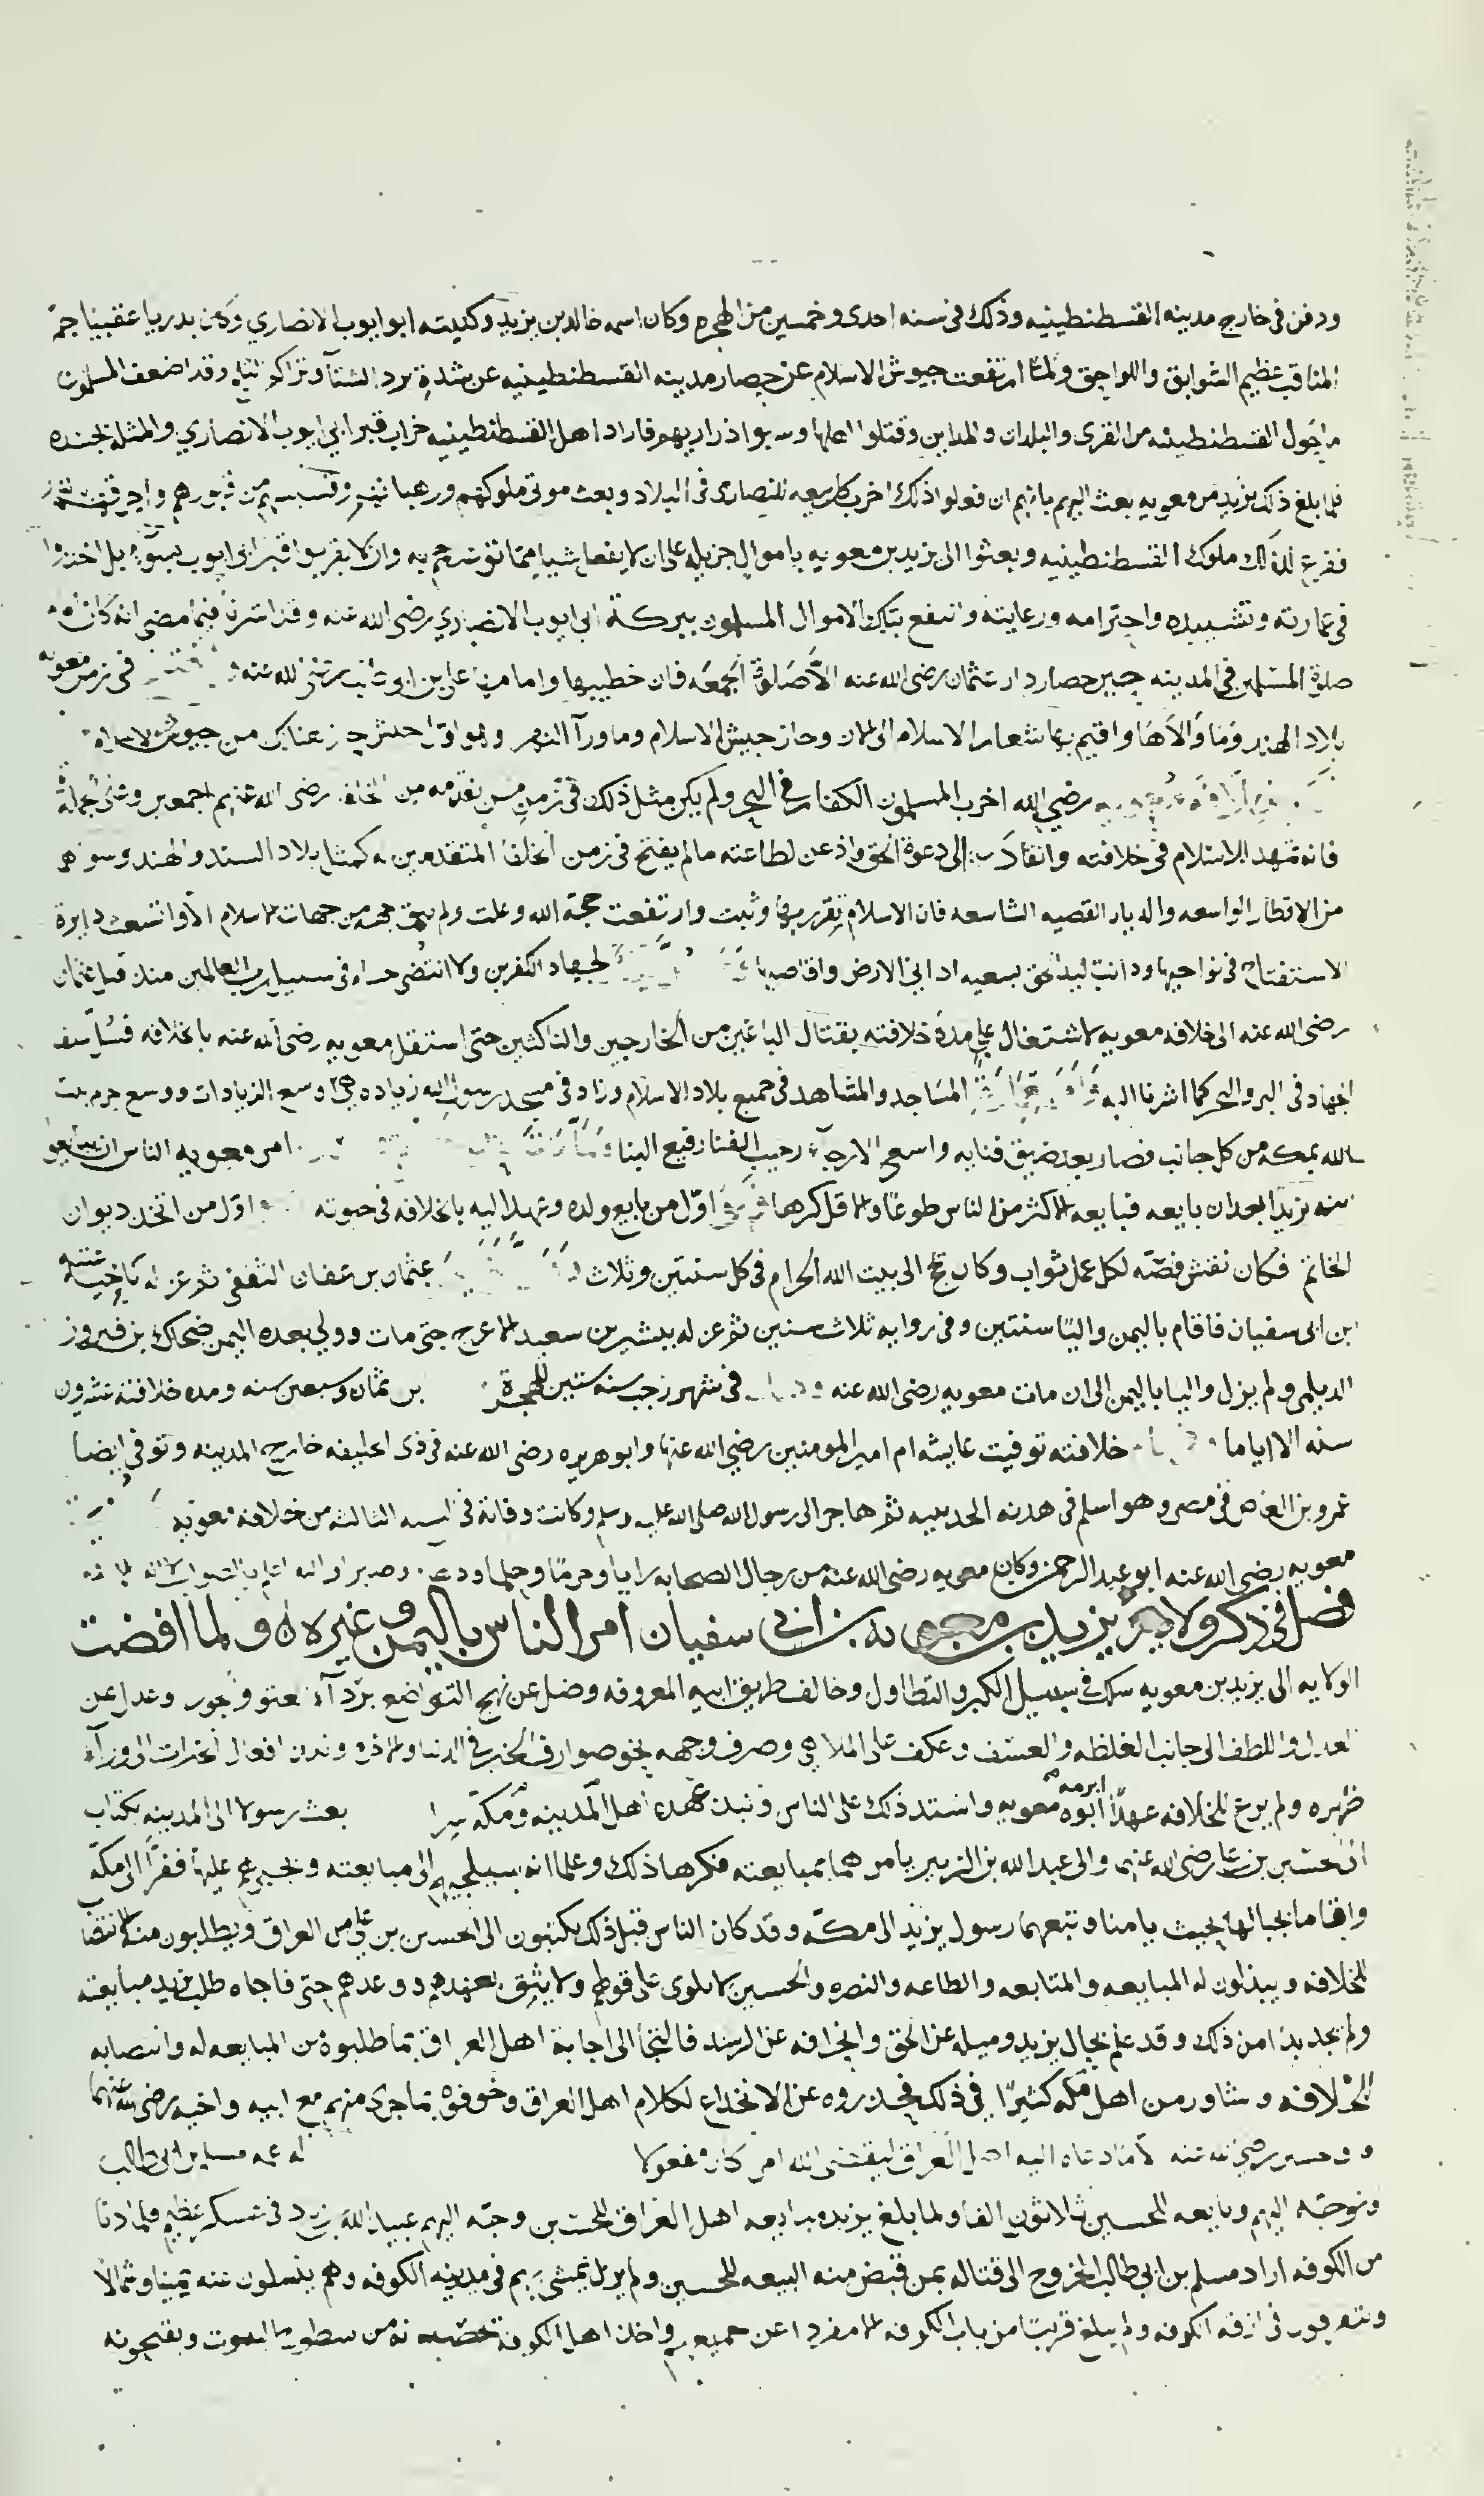 ودفن في خارج مدينه القسطنطينيه وذلك في سنه احدى وخمسين من الهجره وكان اسمه خالد بن يزيد وكنيته ابو ايوب الانصاري وكان بدريا عقبيا جم
المناقب عظيم السوابق واللواحق ولما ارتفعت جيوش الاسلام عن حصار مدينه القسطنطينيه عن شدة برد الشتآ وتراكم ثلجه وقد اضعف المسلمون
ما حول القسطنطينيه من القرى والبلدات والمداين وقتلوا اهلها وسبوا ذراريهم فاراد اهل القسطنطينيه خراب قبر ابي ايوب الانصاري والمثله بجسده
فلما بلغ ذلك يزيد بن معويه بعث اليهم بانهم ان فعلوا ذلك اخرب كل بيعه للنصارى في البلاد وبعث موتى ملوكهم ورهبانهم من قبورهم
ففزع لذلك ملوك القسطنطينيه وبعثوا الى يزيد بن معويه باموال جزيله على ان لا يفعل شيا مما توعدهم به وان لا يقربوا قبر ابي ايوب بسوء بل اخذوا
في عمارته وتشييده واحترامه ورعايته وانتفع بتلك الاموال المسلمون ببركة ابي ايوب الانصاري رضي الله عنه وقد اشرنا فيما مضى انه كان
صلوة المسلمين في المدينه حين حصار دار عثمان رضي الله عنه الا صلوة الجمعه فان خطيبها وامامها علي بن ابي طالب رضي الله عنه في زمن معويه
بلاد الهند وما والاها واقيم بها شعار الاسلام الى الان وجاز جيش الاسلام وما ورآ النهر وهو اول من جيوش الاسلام
رضي الله اخرب المسلمون الكفار في البحر ولم يكن مثل ذلك في زمن من تقدمه من الخلفا رضي الله عنهم اجمعين وعلى الجملة
فانه تمهد الاسلام في خلافته وانقاد الى دعوة الحق واذعن لطاعته ما لم يفتح في زمن الخلفا المتقدمين له كمثل بلاد السند والهند وسواهم
من الاقطار الواسعه والديار القصيه الشاسعه فان الاسلام تقرر بها وثبت وارتفعت حجة الله وعلت ولم يبق جهه من جهات الاسلام الا واتسعت دايرة
الاستفتاح في نواحيها ودانت ليد الحق بسعيه اداني الارض واقاصيها لجهاد الكفرين ولا انتضى حسام في سبيل رب العالمين منذ قتل عثمان
رضي الله عنه الى خلافه معويه لاشتغال علي مدة خلافته بقتال الباغين من الخارجين والناكثين حتى استقل معويه رضي الله عنه بالخلافه
الجهاد في البر والبحر كما اشرنا اليه المساجد والمشاهد في جميع بلاد الاسلام وزاد في مسجد رسول الله زياده هي اوسع الزيادات ووسع حرم بيت
الله بمكه من كل جانب فصار بعد ضيق فنايه واسع الارجآء رحيب الفنا رفيع البنا امر معويه الناس ان يبايعوا
ابنه يزيد بعد ان بايعه فبايعه الاكثر من الناس طوعا والاقل كرها اول من بايع ولده وعهد اليه بالخلافه في حيوته اول من اتخذ ديوان
الخاتم فكان نقش فصه لكل عمل ثواب وكان يحج الى بيت الله الحرام في كل سنتين وثلاث عثمان بن عفان الثقفي ثم عزله باخيه عتبه
ابن ابي سفيان فاقام باليمن واليا سنتين وفي روايه ثلاث سنين ثم عزله ببشير بن سعيد الاعرج حتى مات وولي بعده اليمن ضحاك بن فيروز
الديلمي ولم يزل واليا باليمن الى ان مات معويه رضي الله عنه في شهر رجب سنه ستين للهجرة بن ثمان وسبعين سنه ومده خلافته عشرون
سنه الا اياما خلافته توفيت عايشه ام المومنين رضي الله عنها وابو هريره رضي الله عنه في ذي الحليفه خارج المدينه وتوفي ايضا
عمرو بن العاص في مصر وهو اسلم في هدنه الحديبيه ثم هاجر الى رسول الله صلى الله عليه وسلم وكانت وفاته في السنه الثالثه من خلافه معويه
معويه رضي الله عنه ابو عبد الرحمن وكان معويه رضي الله عنه من رجال الصحابه رايا وحزما وحلما
فصل في ذكر ولاية يزيد بن معويه بن ابي سفيان امر الناس باليمن وغيره ولما افضت
الولايه الى يزيد بن معويه سلك في سبيل الكبر والتطاول وخالف طريق ابيه المعروفه وضل عن نهج التواضع بردآء العتو وعدل عن
العدل واللطف الى جانب الغلظه والعسف وعكف على الملاهي وصرف وجهه نحو صوارف الخير في الدنيا والاخره ونبذ افعال الخيرات الى ورآء
ظهره ولم يرع للخلافه عهدا ابرمه ابوه معويه واشتد ذلك على الناس ونبذ عهده اهل المدينه ومكه سرا بعث رسولا الى المدينه بكتاب
الى الحسين بن علي رضي الله عنهما والى عبد الله بن الزبير يامرهما بمبايعته فكرها ذلك وعلما انه سيلجيهم الى مبايعته ويجبرهم عليها ففرا الى مكه
واقاما بجبالها بحيث يامنا وتبعهما رسول يزيد الى مكه وقد كان الناس قبل ذلك يكتبون الى الحسين بن علي من العراق ويطلبون منه الانتصاب
للخلافه ويبذلون له المبايعه والمتابعه والطاعه والنصره والحسين لا يلوى على قولهم ولا يثق بعهدهم ووعدهم حتى فاجاه طلب يزيد مبايعته
ولم يجد بدا من ذلك وقد علم بحال يزيد وميله عن الحق وانحرافه عن الرشد فالتجأ الى اجابة اهل العراق بما طلبوه من المبايعه له وانتصابه
للخلافه وشاور من اهل مكه كثيرا في ذلك فحذروه عن الانخداع لكلام اهل العراق وخوفوه بما جرى منهم مع ابيه واخيه رضي الله عنهما
حسين رضي الله عنه لما دعاه اليه اهل العراق ليقضي الله امرا كان مفعولا له عمه مسلم بن ابي طالب
وتوجه اليهم وبايعه للحسين ثلاثون الفا ولما بلغ يزيد مبايعه اهل العراق للحسين وجه اليهم عبيد الله بن زياد في عسكر عظيم فلما دنا
من الكوفه اراد مسلم بن ابي طالب الخروج الى قتاله بمن قبض منه البيعه للحسين ولم يزل يمشي بهم في مدينه الكوفه وهم ينسلون عنه يمينا وشمالا
ويتفرقون في ازقه الكوفه ولم يبلغ قريبا من باب الكوفه الا مفردا عن جميعهم واخذ اهل الكوفه من سطوح البيوت ويقبحونه